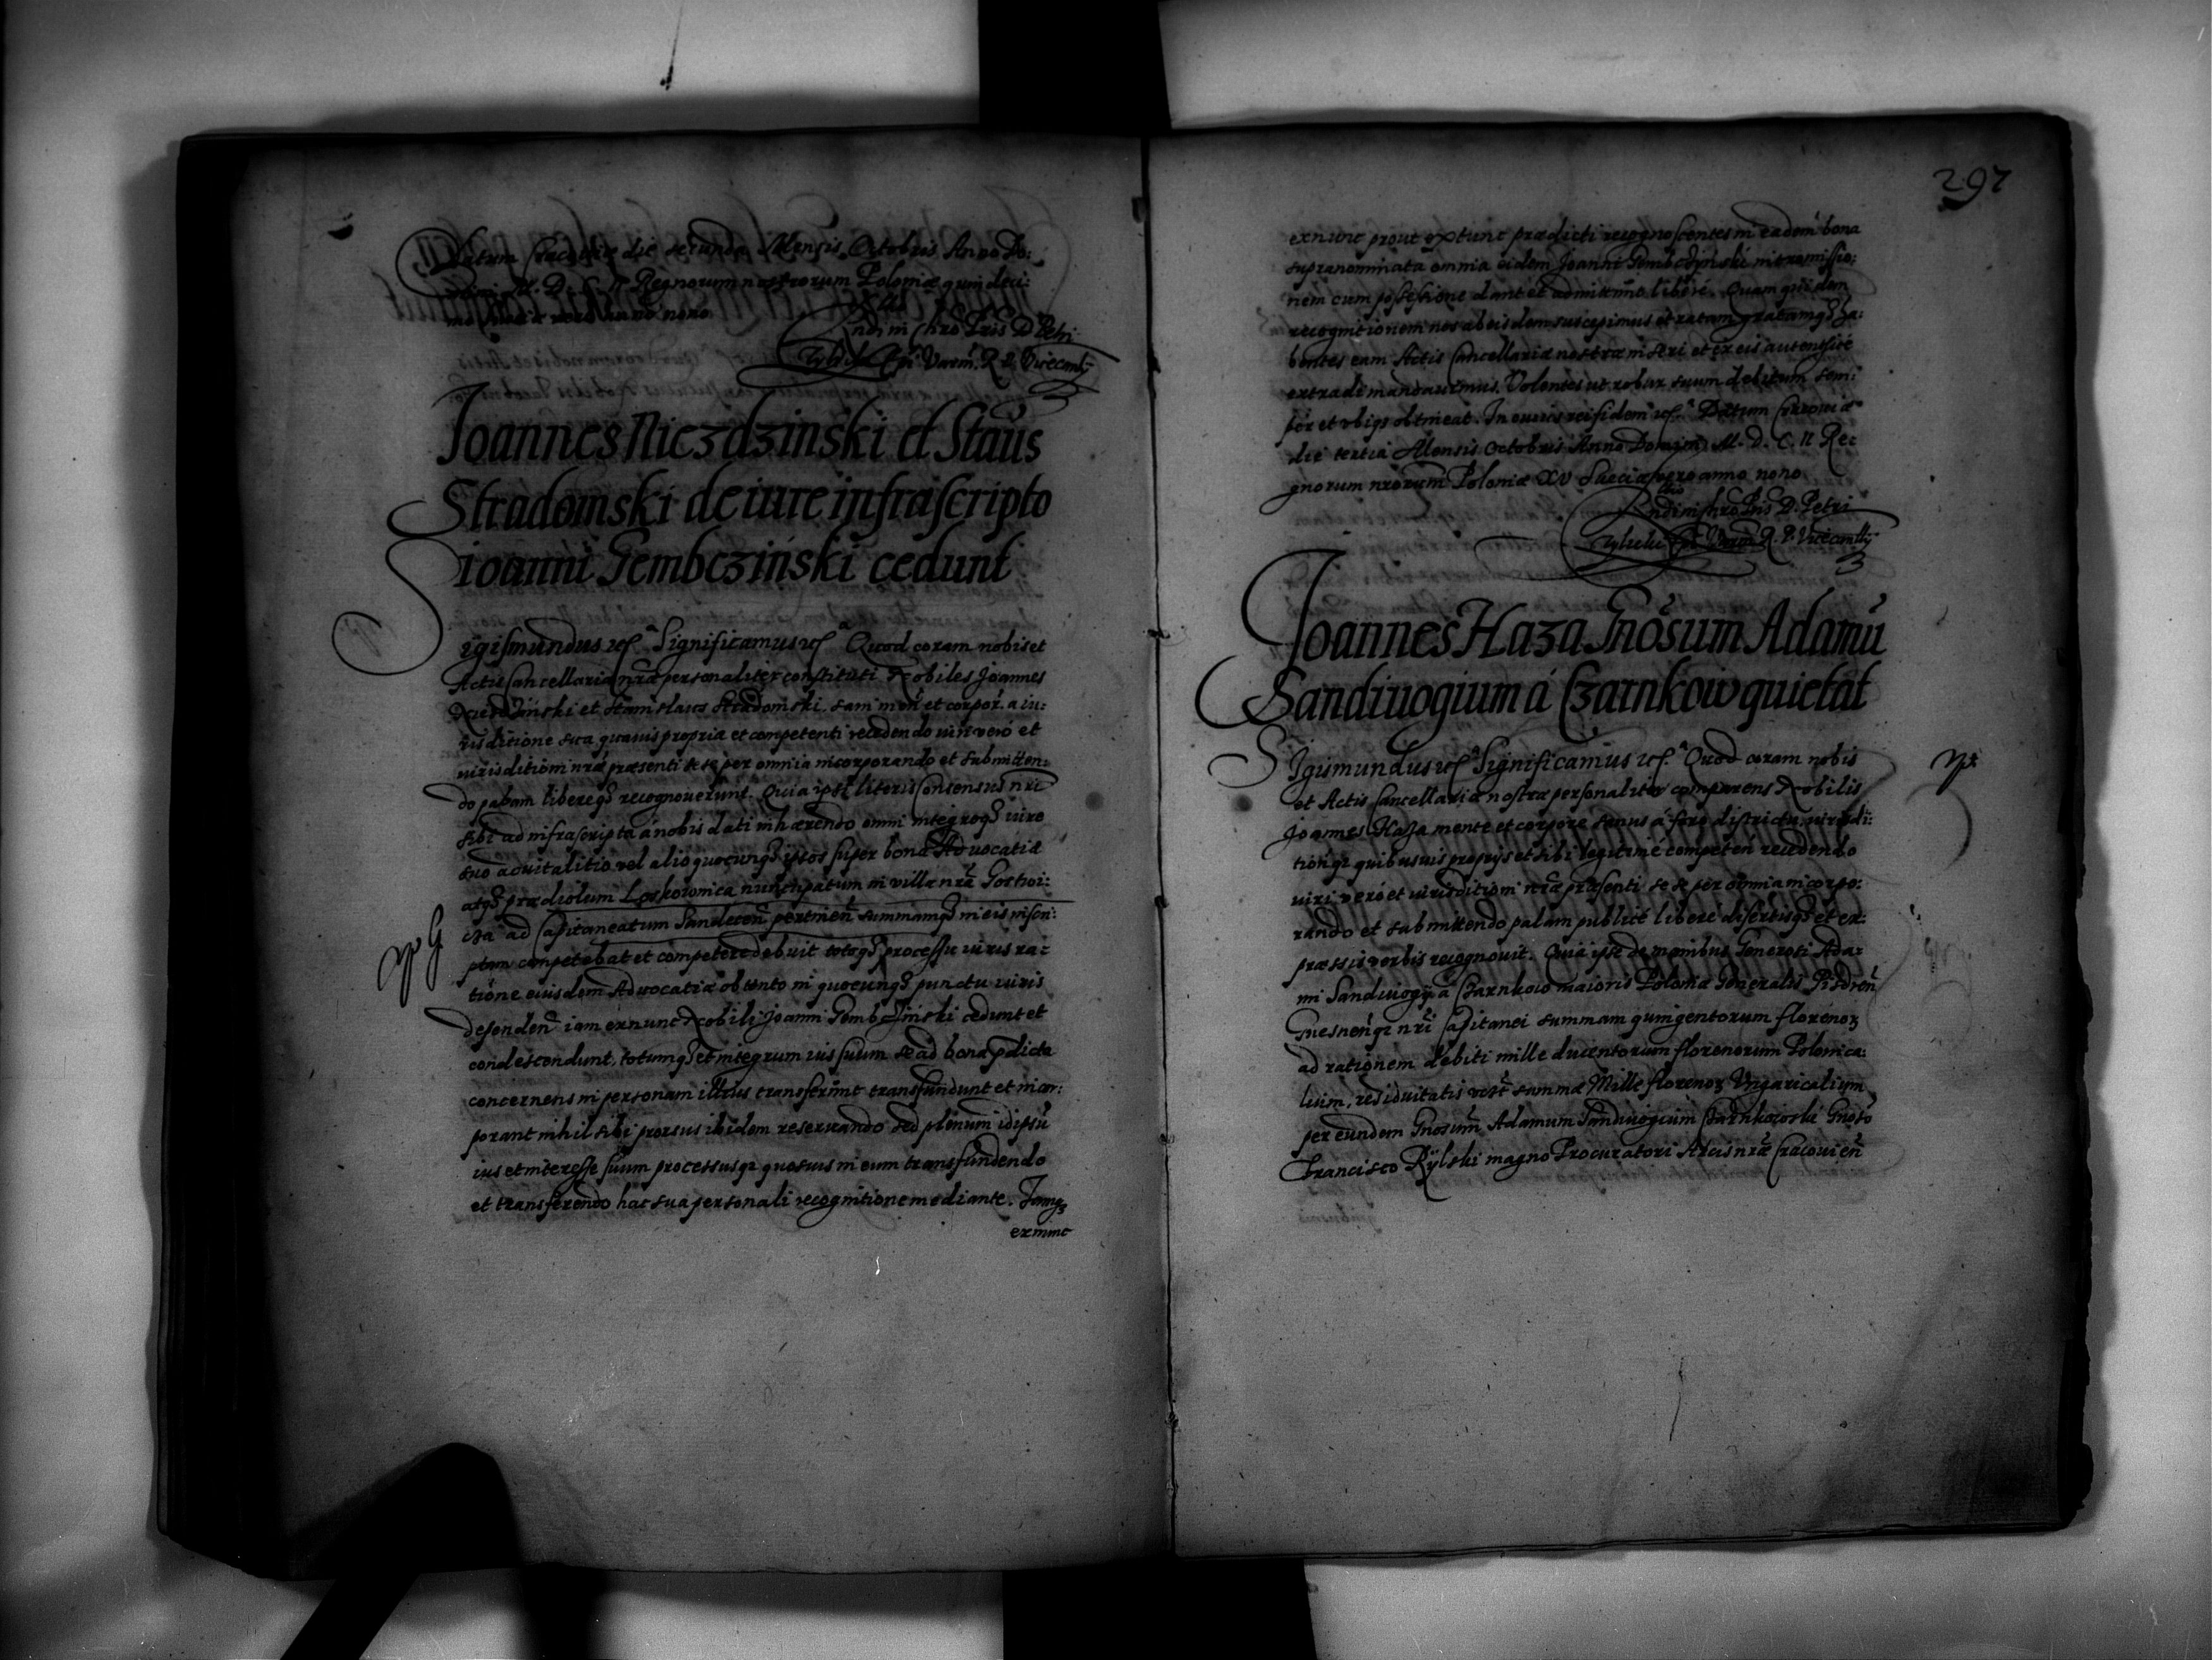 Datum Cracoviæ die secunda Mensis Octobris Anno Do:
mini M. D. C. II Regnorum nostrorum Poloniæ quindeci:
mo Sueciæ vero anno nono
Rndi in Chro Pris D. Petri
Tylicki Epi Varm. R. P. Vicecanlÿ
Joannes Niezdzinski et Staūs
Stradomski de iure infrascripto
ioanni Gembcziński cedunt
Sigismundus etc. Significamus etc. Quod coram nobis et
Actis Cancellariæ nræ personaliter constituti Nobiles Joannes
et Stanislaus Stradomski. sani men et corpor. a iu:
risditione sua quavis propria et competenti recedendo iuri vero et
iurisditioni nræ præsenti se se per omnia incorporando et submitten:
do palam libereqȝ recognoverunt. Quia ipsi literis Consensus nri
sibi ad infrascripta a nobis dati inhærendo omni integroqȝ iure
suo advitalitio vel alio quocunqȝ ipsos super bona Advocatiæ
atqȝ prædiolum Loskownica nuncupatum in villa nra
ad Capitaneatum Sandecen pertinen summamqȝ in eis inscri:
ptam competebat et competere debuit totoqȝ processu iuris ra:
tione eiusdem Advocatiæ obtento in quocunqȝ punctu iuris
defenden iam exnunc Nobili Joanni Gembcziński cedunt et
condescendunt, totumqȝ et integrum ius suum se ad bona pdicta
concernens in personam illius transferunt transfundunt et incor:
porant nihil sibi prorsus ibidem reservando sed plenum id ipsū
ius et interesse suum processusqȝ quosvis in eum transfundendo
et transferendo hac sua personali recognitione mediante. Jamqȝ
exnunc
297
exnunc prout extunc prædicti recognoscentes in eadem bona
supranominata omnia eidem Joanni Gembczÿnski intromissio:
nem cum possessione dant et admittunt liberè. Quam quidem
recognitionem nos ab eisdem suscepimus et ratam gratamqȝ ha:
bentes eam Actis Cancellariæ nostræ inseri et ex eis autenticè
extradi mandavimus. Volentes ut robur suum debitum sem:
per et ubiqȝ obtineat. In cuius rei fidem etc. Datum Cracoviæ
die tertia Mensis Octobris Anno Domini M. D. C. II Re:
gnorum nrorum Poloniæ XV Sueciæ vero anno nono
Rndi in Chro Pris D. Petri
Tylicki Epi Varm R. P. Vicecanllÿ
Joannes Haza Gnōsum Adamū
Sandivogium á Czarnkow quietat
SIgismundus etc. Significamus etc. Quod coram nobis
et Actis Cancellariæ nostræ personaliter comparens Nobilis
Joannes Haza mente et corpore sanus á foro districtu iurisdi:
tioneqȝ quibusvis proprijs et sibi legitimè competen recedendo
iuri veró et iurisditioni nræ præsenti se se per omnia incorpo:
rando et submittendo palam publicè liberè disertisqȝ et ex:
pressis verbis recognovit. Quia ipse de manibus Generosi Ada:
mi Sandivogij á Czarnkow maioris Poloniæ Generalis Pisdren
Gnesnenqȝ nri Capitanei summam quingentorum florenoȝ
ad rationem debiti mille ducentorum florenorum Polonica:
lium, residuitatis vero summæ Mille florenoȝ Ungaricalium
per eundem Gnosum Adamum Sandivogium Czarnkowski Gnoso
Francisco Rÿlski magno Procuratori Arcis nræ Cracovien